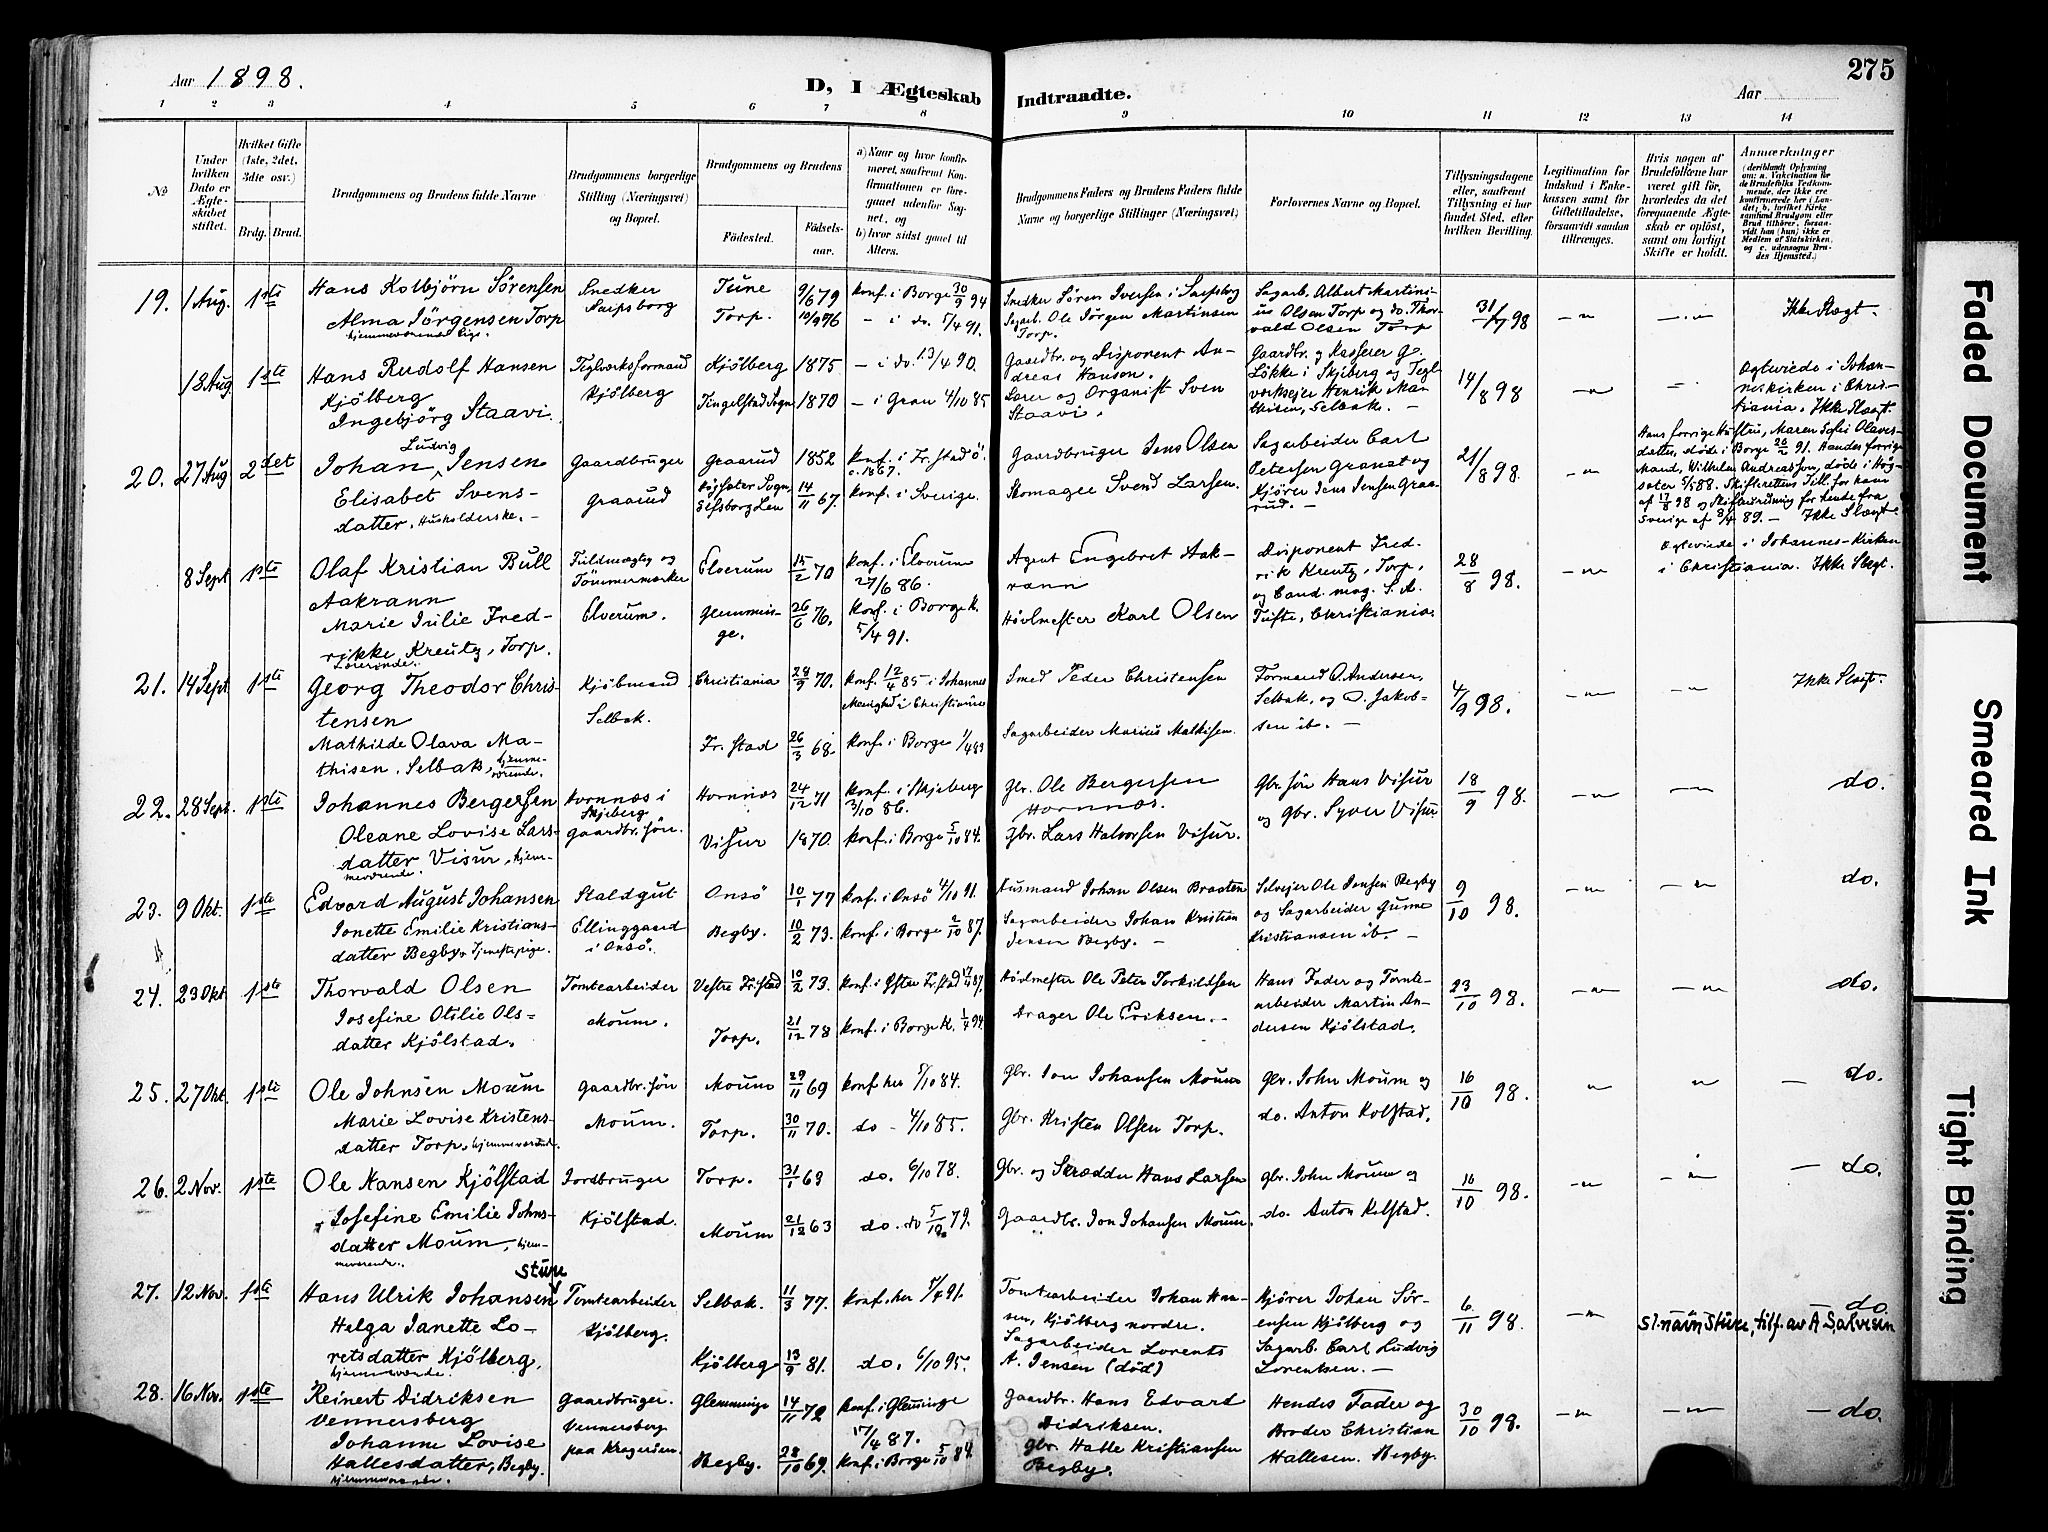 Aar 1898.
D, I Ægteskab Indtraadte.
Aar
275
1 2 3 4 5 6 7 8 9 10 11 12 13 14
No
Under hvilken Dato er Ægteskabet stiftet.
Hvilket Gifte (1ste, 2det, 3die osv.)
Brdg. Brud.
Brudgommens og Brudens fulde Navne
Brudgommens borgerlige Stilling (Næringsvei) og Bopæl.
Brudgommens og Brudens
Fødested.
Fødselsaar.
a) Naar og hvor konfirmeret, saafremt Konfirmationen er foregaaet udenfor Sognet, og
b) hvor sidst gaaet til Alters.
Brudgommens Faders og Brudens Faders fulde Navne og borgerlige Stillinger (Næringsvei)
Forlovernes Navne og Bopæl.
Tillysningsdagene eller, saafremt Tillysning ei har fundet Sted, efter hvilken Bevilling.
Legitimation for Indskud i Enkekassen samt for Giftetilladelse, forsaavidt saadan tiltrænges.
Hvis nogen af Brudefolkene har været gift før, hvorledes da det foregaaende Ægteskab er opløst, samt om lovligt Skifte er holdt.
Anmærkninger
(deriblandt Oplysning om: a. Vakcination for de Brudefolks Vedkommende, der ikke ere konfirmerede her i Landet; b. hvilket Kirkesamfund Brudgom eller Brud tilhører, forsaavidt han (hun) ikke er Medlem af Statskirken, og c. udensogns Brudes Hjemsted.)
19. 1 Aug. 1ste Hans Kolbjörn Sörensen Snedker Sarpsborg Tune 9/6 79 konf. i Borge 30/9 94 Snedker Sören Iversen i Sarpsborg Sagarb. Albert Martinius Olsen Torp og do. Thorvald Olsen Torp 31/7 98 Ikke Slægt.
Alma Jörgensen Torp Torp. 10/9 76 – i do. 5/4 91. Sagarb. Ole Jörgen Martinsen Torp.
18 Aug 1ste Hans Rudolf Hansen Kjölberg Teglværksformand Kjölberg Kjölberg 1875 – i do. 13/4 90. Gaardbr. og Disponent Andreas Hansen. Gaardbr. og Kasserer G. Lökke i Skjeberg og Teglverksejer Henrik Mathisen, Selbak. 14/8 98 Ægteviede i Johanneskirken i Christiania. Ikke Slægt.
Ingebjörg Staavi. Tingelstad Sogn 1870 – i Gran 4/10 85 Lærer og Organist Sven Staavi.
20. 27 Aug 2det Johan Ludvig Jensen Gaardbruger Graarud Graarud 1852 konf. i Fr.stad c. 1867. Gaardbruger Jens Olsen Sagarbeider Carl Petersen Granat og Kjörer Jens Jensen Graarud. 21/8 98. Hans forrige Hustru, Maren Sofie Olavesdatter, döde i Borge 91. Hendes forrige Mand, Wilhelm Andreassen, döde i Högsäter 5/5 88. Skifterettens Till. for ham af 17/8 98 og Skifteordning for hende fra Sverige af 8/4 89. – Ikke Slægt
Elisabet Svensdatter, Husholderske. Högsäter Sogn, Elfsborg Len 14/11 67. konf. i Sverige. Skomager Svend Larsen.
8 Sept 1ste Olaf Kristian Bull Aakrann Fuldmægtig og Tömmermærker Elverum. Elverum 15/2 70 konf. i Elverum 27/6 86. Agent Engebret Aakrann Disponent Fredrik Kreutz, Torp, og Cand. mag. S. A. Tufte, Christiania. 28/8 98. Ægteviede i Johannes-Kirken i Christiania. Ikke Slægt.
Marie Julie Fredrikke Kreutz, Torp. Lærerinde. Glemminge. 26/6 76. konf. i Borge K. 5/4 91. Hövlmester Karl Olsen
21. 14 Sept 1ste Georg Theodor Christensen Kjöbmand Selbak. Christiania 28/9 70. konf. 12/4 85 i Johannes Menighed i Christiania Smed Peder Christensen Formand O. Andersen, Selbak, og O. Jakobsen ib. – 4/9 98. Ikke Slægt.
Mathilde Olava Mathisen, Selbak, hjemmeværende. Fr.stad 26/3 68. konf. i Borge 1/4 83 Sagarbeider Marius Mathisen.
22. 28 Sept. 1ste Johannes Bergersen Hornnæs i Skjeberg Gaardbr. sön. Hornnæs 24/12 71 konf. i Skjeberg 3/10 86. Gbr. Ole Bergersen Hornnæs. Gbr. sön Hans Visur og Gbr. Syver Visur. 18/9 98. do.
Oleane Lovise Larsdatter Visur, hjemmeværende. Visur 1870. konf. i Borge 5/10 84. Gbr. Lars Halvorsen Visur.
23. 9 Okt. 1ste Edvard August Johansen Staldgut Ellinggaard i Onsö. Onsö 10/1 77 konf. i Onsö 4/10 91. Husmand Johan Olsen Braaten Selvejer Ole Jensen Begby og Sagarbeider Gunne Kristiansen ib. – 9/10 98. do.
Jonette Emilie Kristiansdatter Begby. Tjenestepige. Begby. 10/2 73. konf. i Borge 2/10 87. Sagarbeider Johan Kristian Jensen Begby. –
24. 23 Okt 1ste Thorvald Olsen Tomtearbeider Moum. Vestre Fr.stad 10/2 73. konf. i Östre Fr.stad 17/4 87. Hövlmester Ole Peter Torkildsen Hans Fader og Tomtearbeider Martin Andersen Kjölstad. 23/10 98. do.
Josefine Otilie Olsdatter Kjölstad. Torp. 21/12 78 konf. i Borge K. 1/4 94. Drager Ole Eriksen.
25. 27 Okt. 1ste Ole Johnsen Moum Gaardbr. sön Moum. Moum 29/11 69 konf. her 5/10 84. Gbr. Jon Johansen Moum Gbr. John Moum og do. Anton Kolstad. 16/10 98. do.
Marie Lovise Kristensdatter Torp, hjemmeværende. Torp. 30/11 70. do – 4/10 85. Gbr. Kristen Olsen Torp.
26. 2 Nov. 1ste Ole Hansen Kjölstad Jordbruger Kjölstad. Torp. 31/1 63 do. 6/10 78. Gbr. og Skrædder Hans Larsen Gbr. John Moum og do. Anton Kolstad. 16/10 98. – do.
Josefine Emilie Johnsdatter Moum, hjemmeværende. Moum 21/12 63 do. do 5/10 79. Gaardbr. Jon Johansen Moum.
27. 12 Nov. 1ste Hans Ulrik Johansen Sture Tomtearbeider Kjölberg. Selbak. 11/3 77. konf. her 5/4 91. Tomtearbeider Johan Hansen, Kjölberg nordre. Kjörer Johan Sörensen Kjölberg og Sagarb. Carl Ludvig Lorentsen. – 6/11 98. – do.
sl.navn Sture, tilf. av A Salvesen
Helga Janette Loretsdatter Kjölberg, hjemmeværende. Kjölberg 13/9 81. do. 6/10 95. Sagarbeider Lorents A. Jensen (död)
28. 16 Nov. 1ste Reinert Didriksen Vennersberg Gaardbruger. Vennersberg paa Kragerøen. Glemminge 14/11 72 konf. i Glemminge 17/4 87. Gaardbr. Hans Edvard Didriksen. Hendes Fader og Broder Christian Hallesen. Begby. 30/10 98. – do.
Johanne Lovise Hallesdatter, Begby. hjemmeværende. Begby. 28/10 69. konf. i Borge 5/10 84. Gbr. Halle Kristiansen Begby.
Faded Document
Smeared Ink
Tight Binding